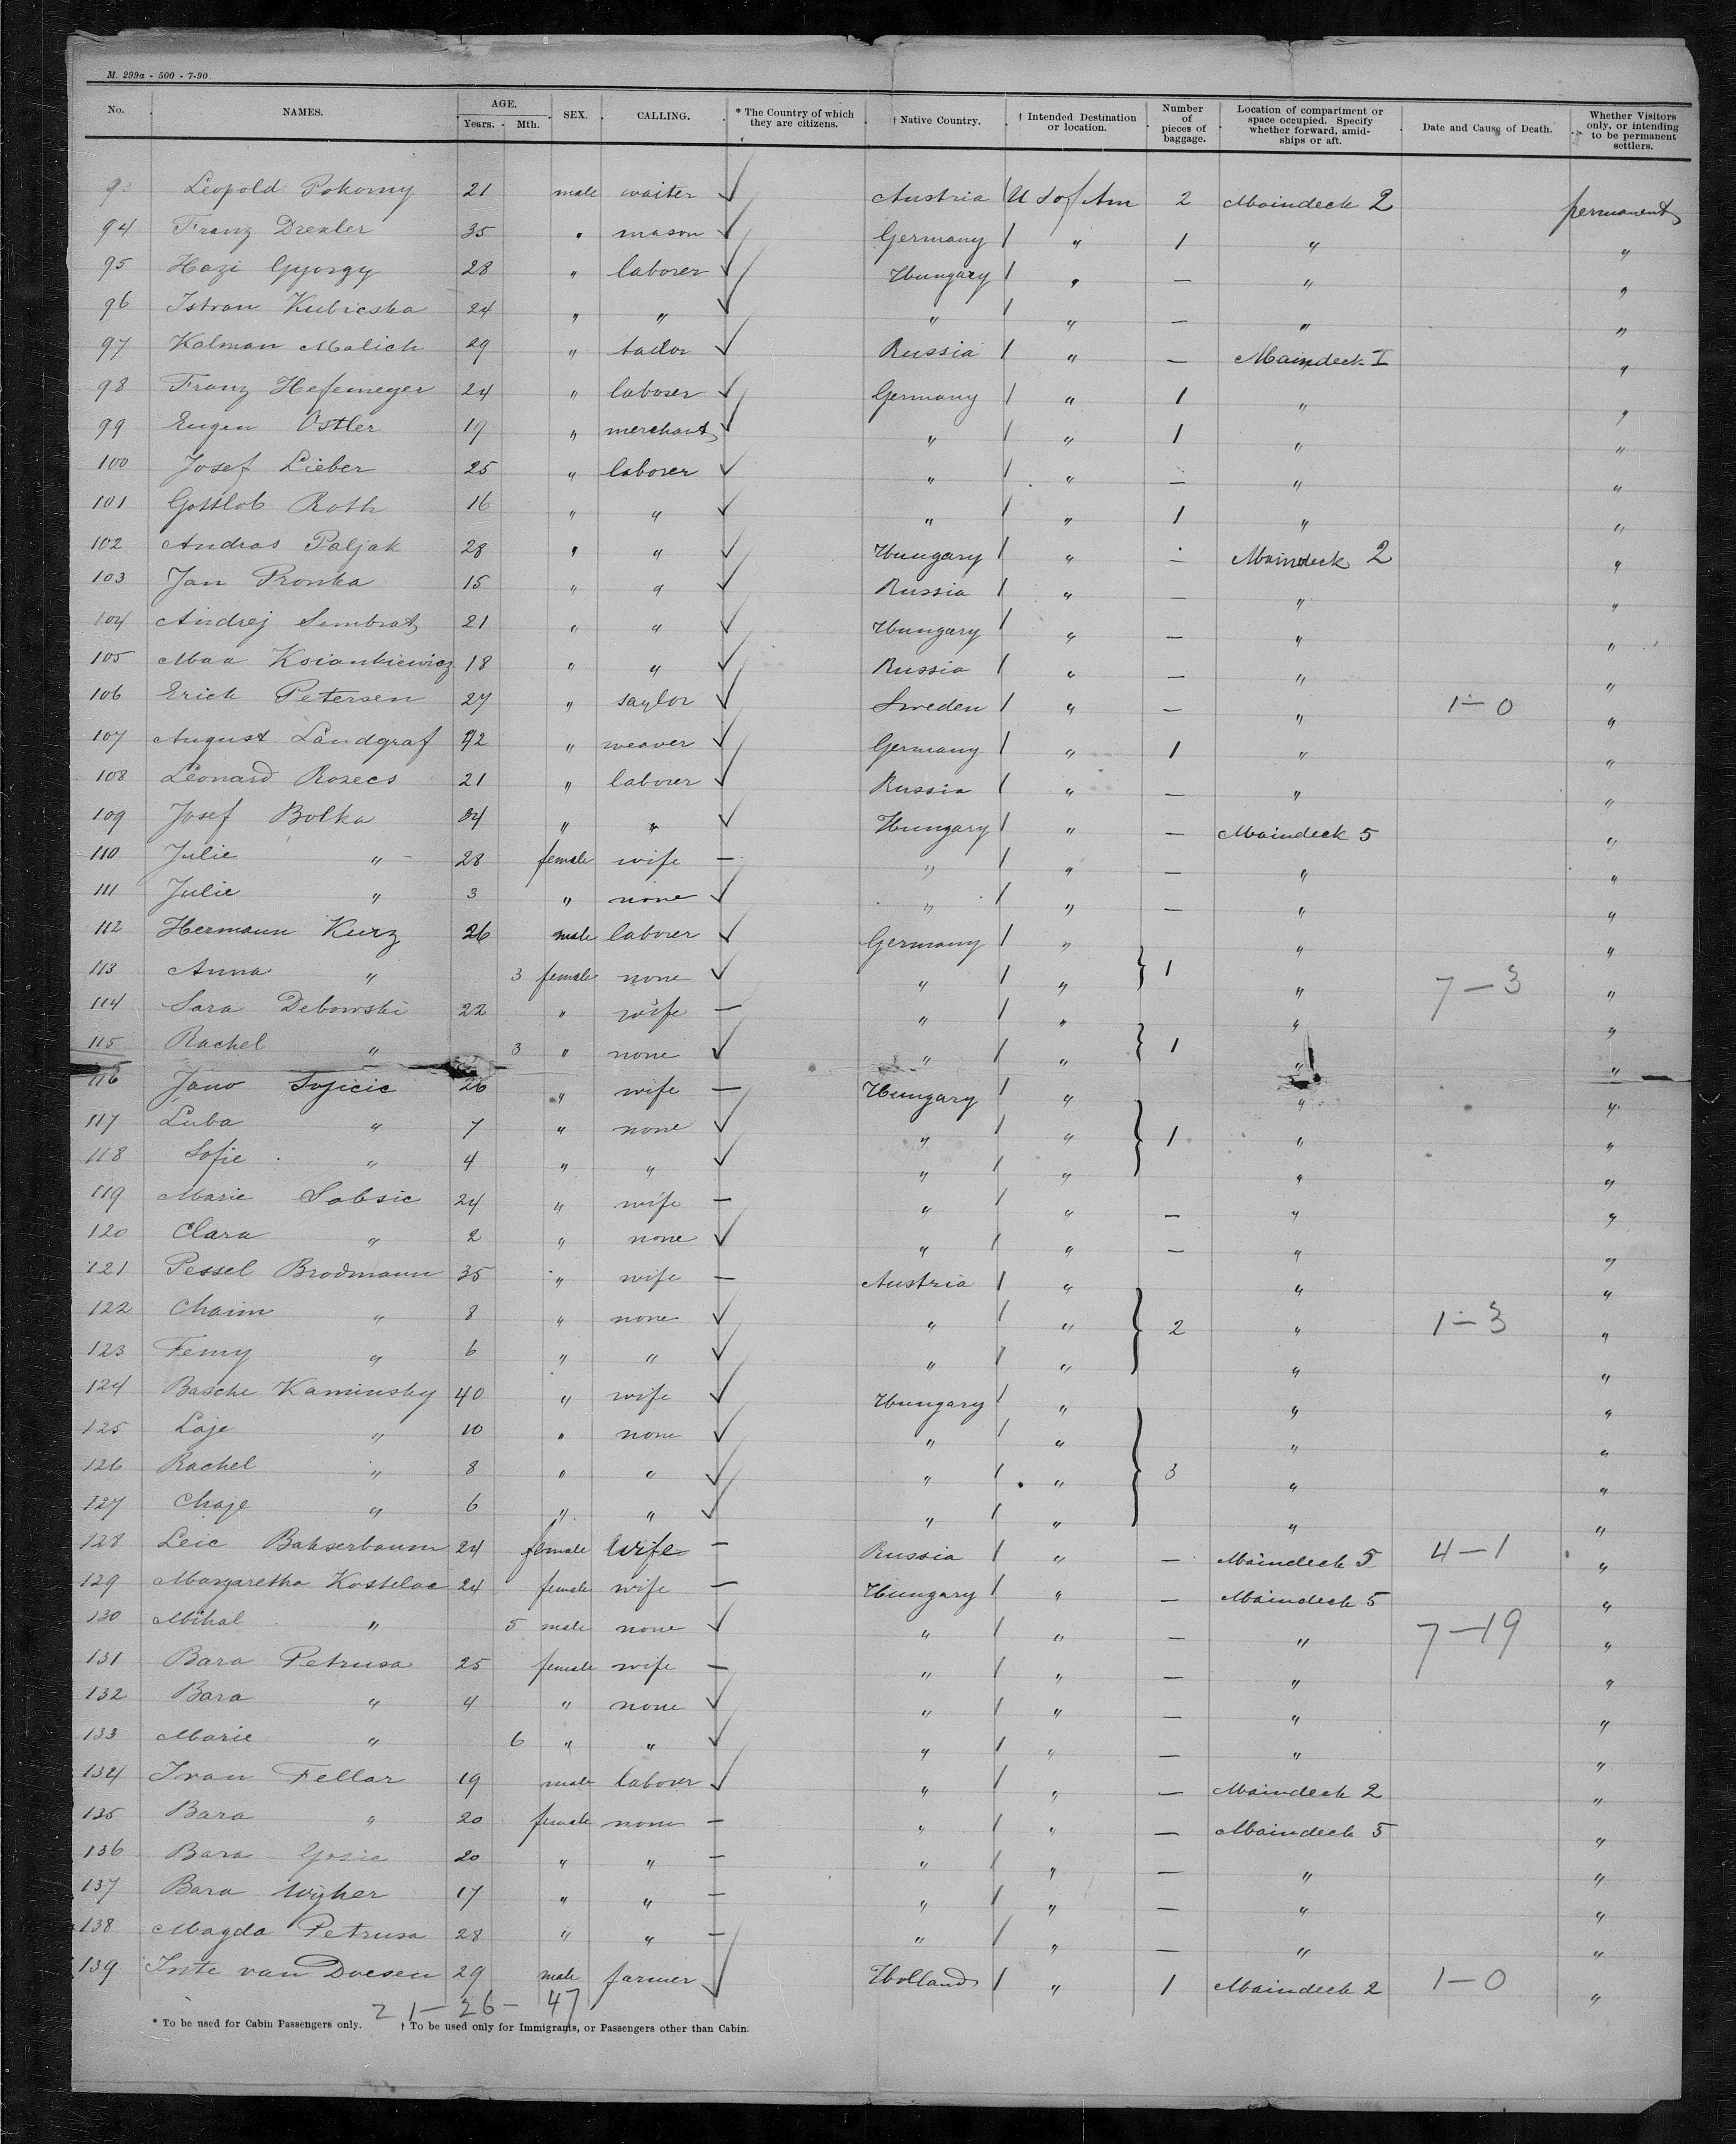 M. 299a - 500 - 7-90.
No. NAMES. AGE. Years. Mth. SEX. CALLING. * The Country of which they are citizens. † Native Country. † Intended Destination or location. Number of pieces of baggage. Location of compartment or space occupied. Specify whether forward, amidships or aft. Date and Cause of Death. Whether Visitors only, or intending to be permanent settlers.
93 Leopold Pokorny 21 male waiter ✓ Austria / U S of Am 2 Maindeck 2 permanent
94 Franz Drexler 35 " mason ✓ Germany / " 1 " "
95 Hazi Gyorgy 28 " laborer ✓ Hungary / " — " "
96 Istvan Kubicska 24 " " ✓ " / " — " "
97 Kalman Malich 29 " tailor ✓ Russia / " — Maindeck I "
98 Franz Hefemeyer 24 " laborer ✓ Germany / " 1 " "
99 Eugen Ostler 19 " merchant ✓ " / " 1 " "
100 Josef Lieber 25 " laborer ✓ " / " — " "
101 Gottlob Roth 16 " " ✓ " / " 1 " "
102 Andras Paljak 28 " " ✓ Hungary / " — Maindeck 2 "
103 Jan Pronka 15 " " ✓ Russia / " — " "
104 Andrej Sembrat 21 " " ✓ Hungary / " — " "
105 Max Ksiankiewicz 18 " " ✓ Russia / " — " "
106 Erich Petersen 27 " saylor ✓ Sweden / " — " 1-0 "
107 August Landgraf 42 " weaver ✓ Germany / " 1 " "
108 Leonard Rosecs 21 " laborer ✓ Russia / " — " "
109 Josef Bolka 34 " " ✓ Hungary / " — Maindeck 5 "
110 Julie " 28 female wife — " / " — " "
111 Julie " 3 " none ✓ " / " — " "
112 Hermann Kurz 26 male laborer ✓ Germany / " " "
113 Anna " 3 female none ✓ " / " } 1 " 7-3 "
114 Sara Debowski 22 " wife — " / " " "
115 Rachel " 3 " none ✓ " / " } 1 " "
116 Jano Sojicic 26 " wife — Hungary / " " "
117 Luba " 7 " none ✓ " / " } 1 " "
118 Sofie " 4 " " ✓ " / " " "
119 Marie Sabsic 24 " wife — " / " — " "
120 Clara " 2 " none ✓ " / " — " "
121 Pessel Brodmann 35 " wife — Austria / " " "
122 Chaim " 8 " none ✓ " / " } 2 " 1-3 "
123 Femy " 6 " " ✓ " / " " "
124 Basche Kaminsky 40 " wife ✓ Hungary / " " "
125 Laje " 10 " none ✓ " / " " "
126 Rachel " 8 " " ✓ " / " } 3 " "
127 Chaje " 6 " " ✓ " / " " "
128 Leie Bakserbaum 24 female wife — Russia / " — Maindeck 5 4-1 "
129 Margaretha Kostelac 24 female wife — Hungary / " — Maindeck 5 "
130 Mihal " 5 male none ✓ " / " — " 7-19 "
131 Bara Petrusa 25 female wife — " / " — " "
132 Bara " 4 " none ✓ " / " — " "
133 Marie " 6 " " ✓ " / " — " "
134 Ivan Fellar 19 male laborer ✓ " / " — Maindeck 2 "
135 Bara " 20 female none — " / " — Maindeck 5 "
136 Bara Gosic 20 " " — " / " — " "
137 Bara Wyher 17 " " — " / " — " "
138 Magda Petrusa 28 " " — " / " — " "
139 Inte van Doesen 29 male farmer ✓ Holland / " 1 Maindeck 2 1-0 "
21-26-47
* To be used for Cabin Passengers only. † To be used only for Immigrants, or Passengers other than Cabin.